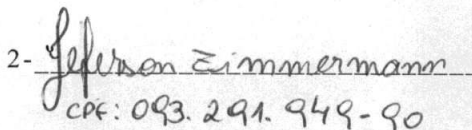 2- Jeferson Zimmermann
CPF: 093.291.949-90